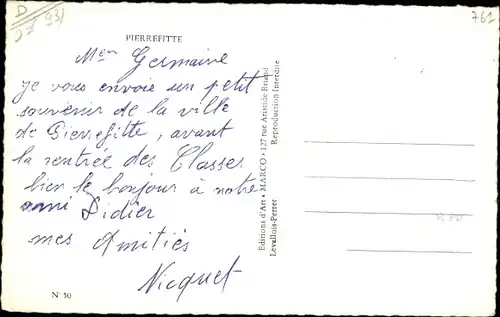 D
93/
761
PIERREFITTE
Men Germaine
je vous envoie un petit
souvenir de la ville
de Pierrefitte, avant
la rentrée des Classes
bien le bonjour à notre
ami Didier
mes Amitiés
Nicquet
N° 50
Editions d'Art « MARCO » 127 rue Aristide Briand
Levallois-Perret
Reproduction Interdite